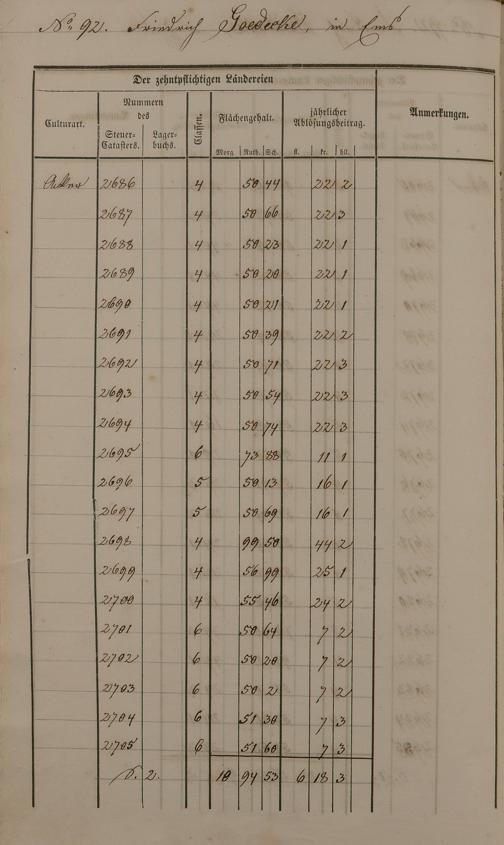 No 92. Friedrich Goedecke, in Ems
Der zehntpflichtigen Ländereien
Culturart.
Nummern des
Steuer-Catasters.
Lager-buchs.
Classen.
Flächengehalt.
Morg. Ruth. Sch.
jährlicher Ablösungsbeitrag.
fl. kr. hll.
Anmerkungen.
Acker 2686 4 50 44 22 2
2687 4 50 66 22 3
2688 4 50 23 22 1
2689 4 50 20 22 1
2690 4 50 21 22 1
2691 4 50 39 22 2
2692 4 50 71 22 3
2693 4 50 54 22 3
2694 4 50 74 22 3
2695 6 73 88 11 1
2696 5 50 13 16 1
2697 5 50 69 16 1
2698 4 99 50 44 2
2699 4 56 99 25 1
2700 4 55 46 24 2
2701 6 50 64 7 2
2702 6 50 20 7 2
2703 6 50 2 7 2
2704 6 51 30 7 3
2705 6 51 60 7 3
2. 10 94 53 6 18 3